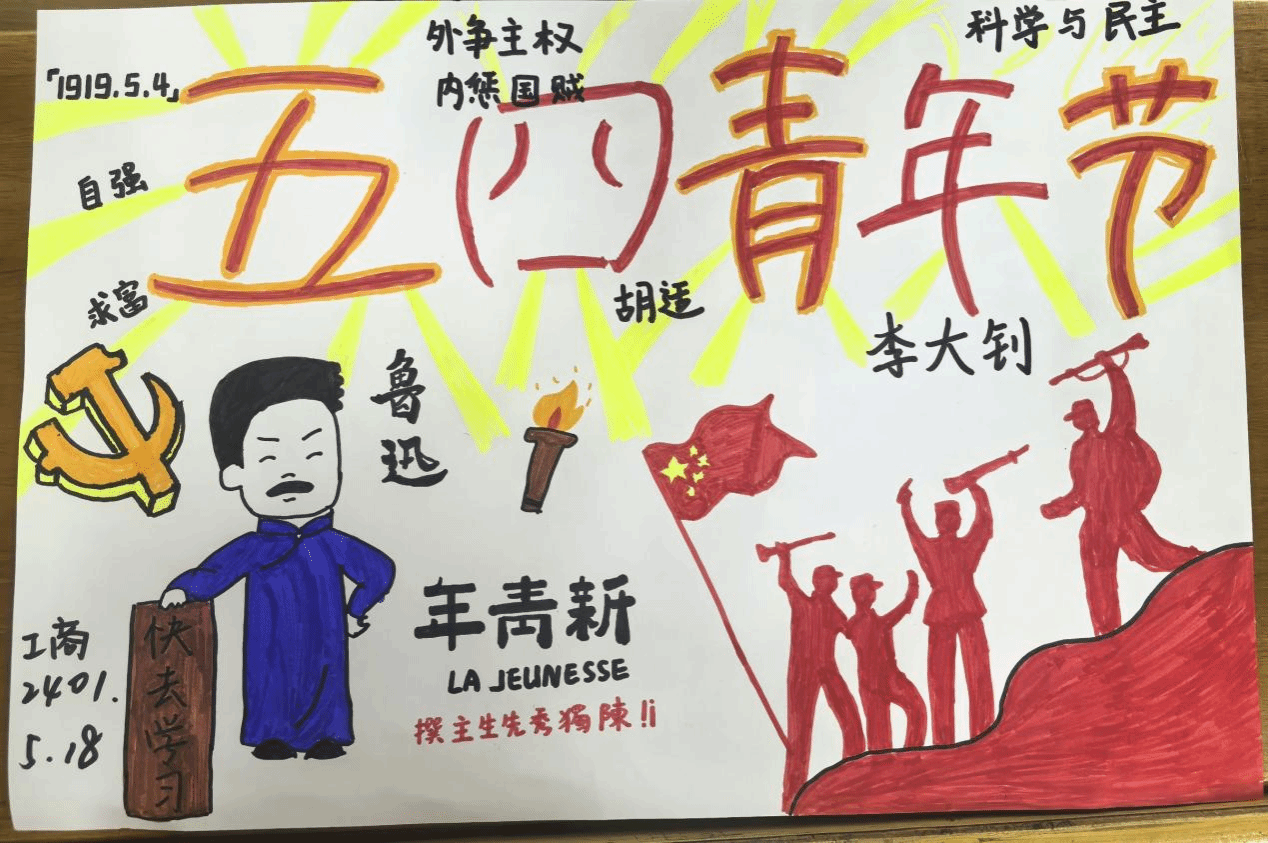 外争主权
内惩国贼
科学与民主
「1919.5.4」
五四青年节
自强
求富
胡适
李大钊
鲁迅
年青新
LA JEUNESSE
撰主生先秀獨陳!i
快去学习
工商
2401.
5.18